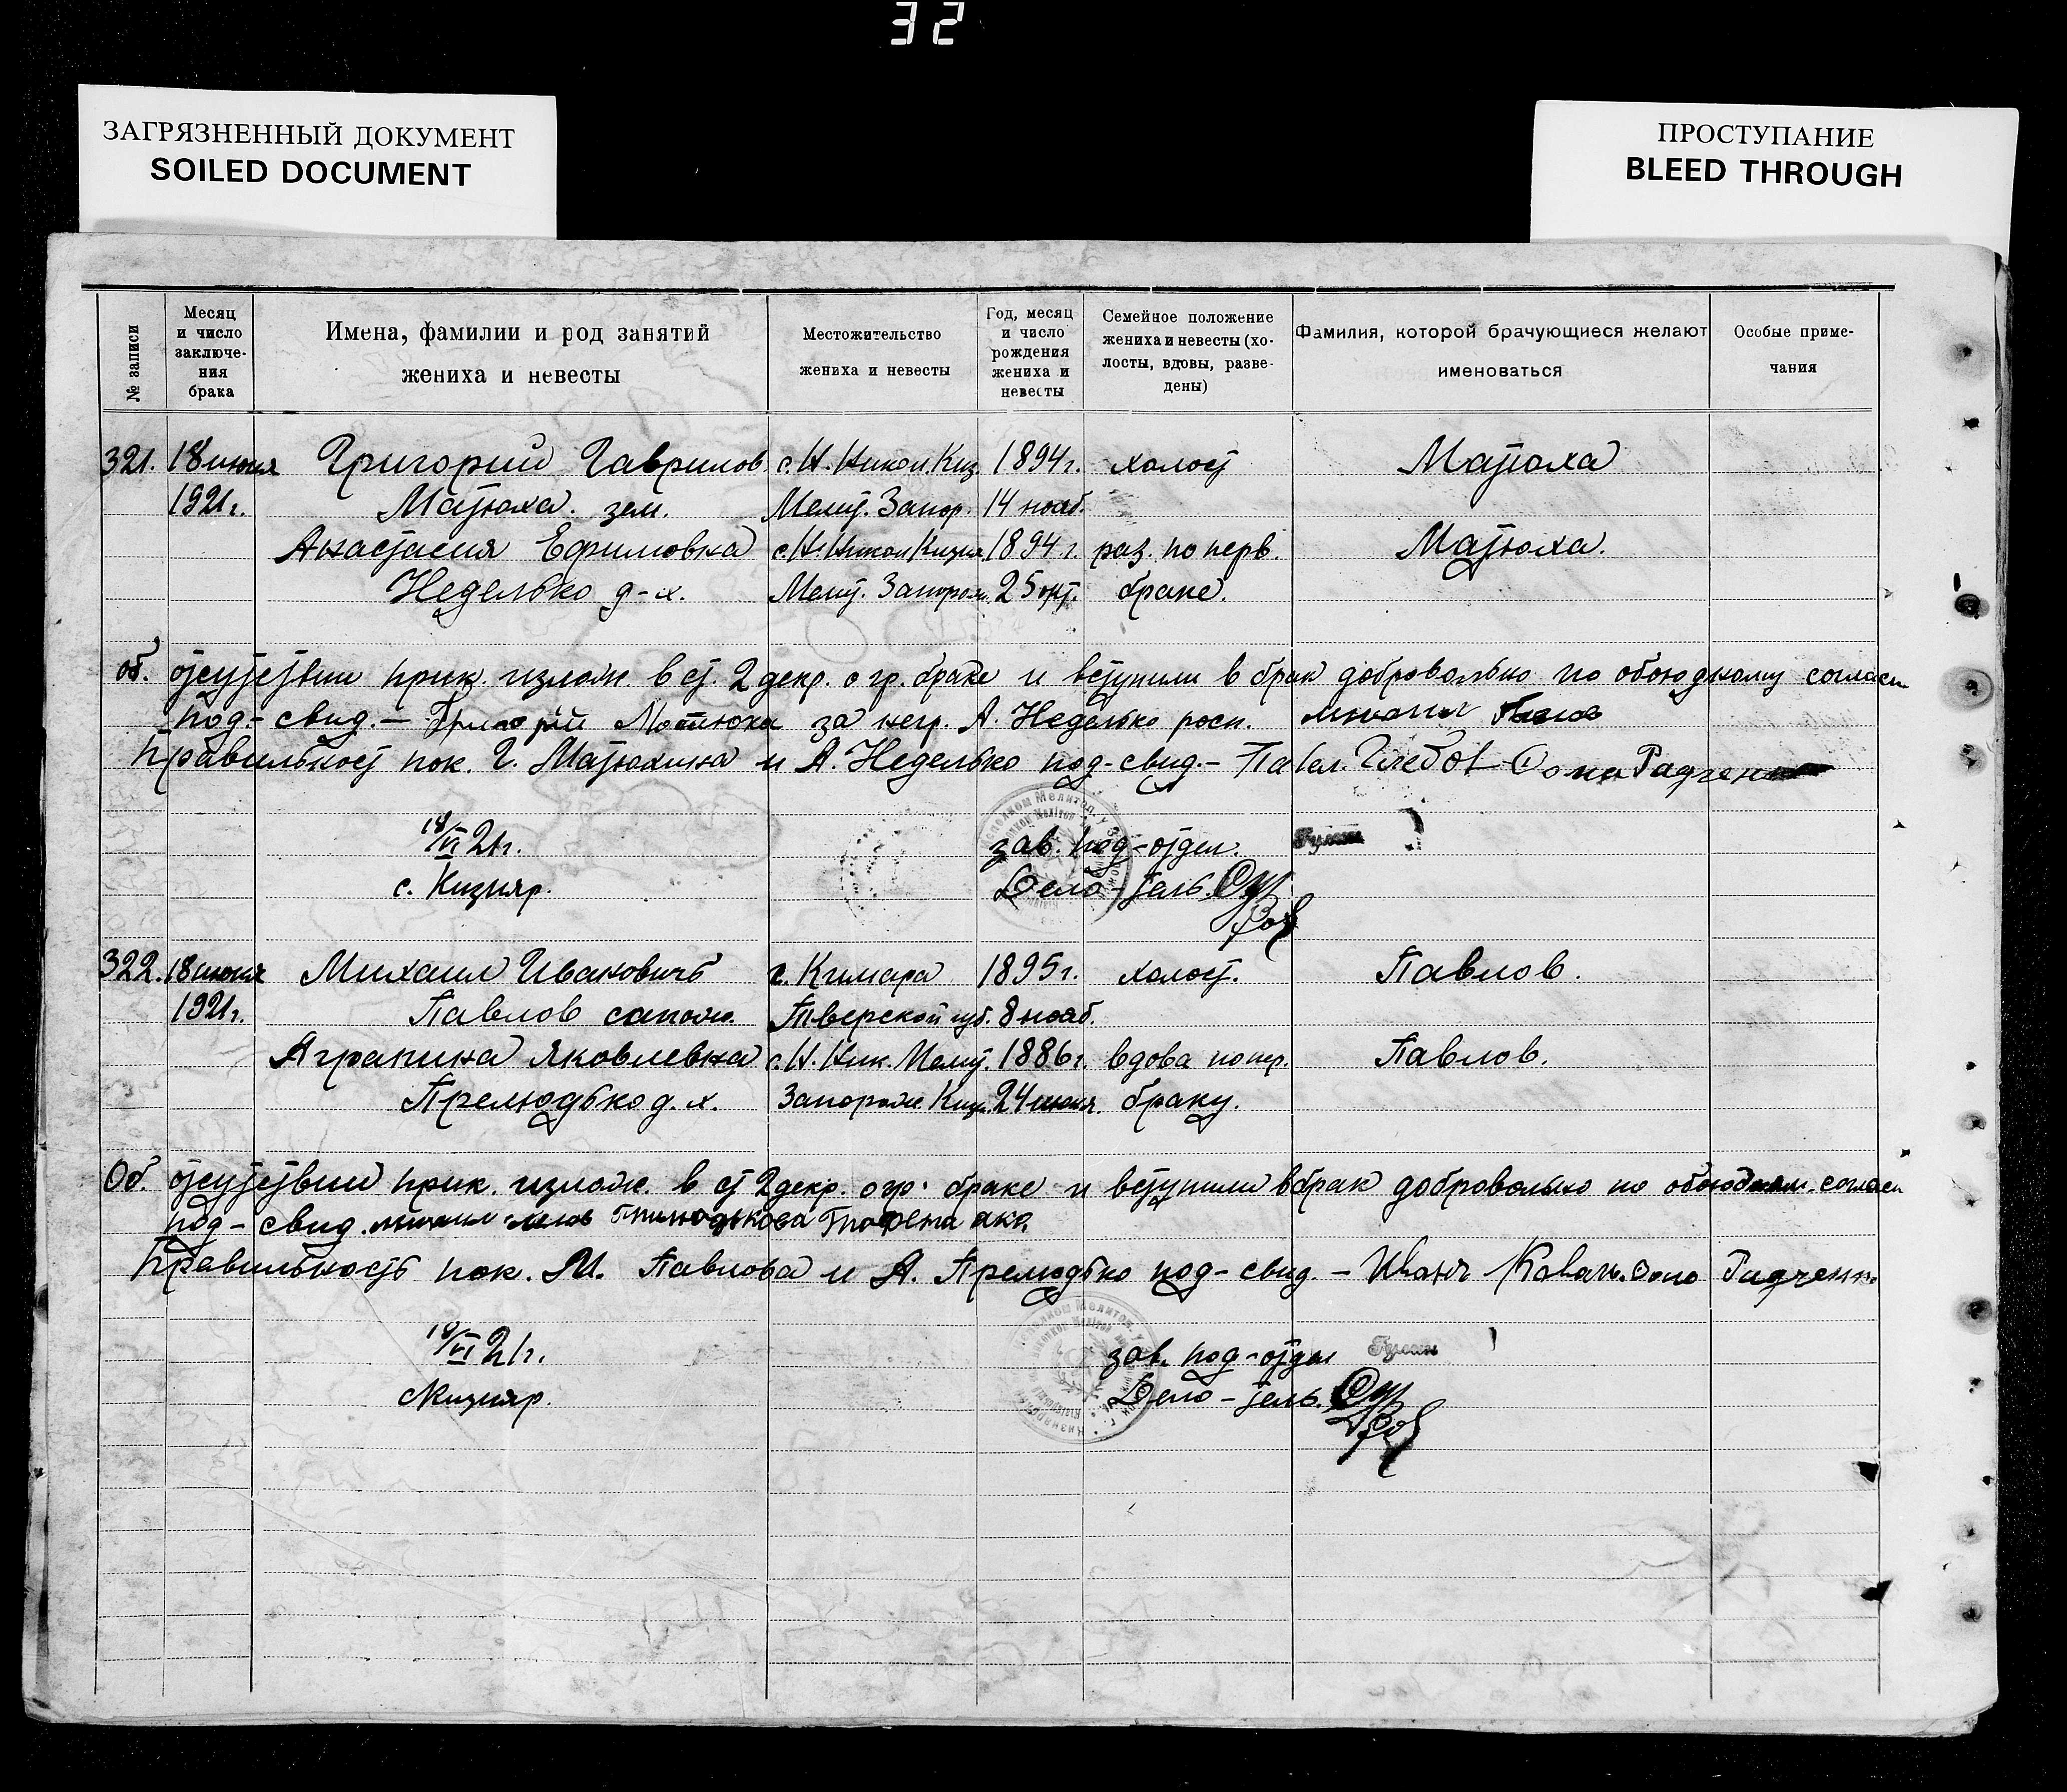 32
ЗАГРЯЗНЕННЫЙ ДОКУМЕНТ
SOILED DOCUMENT
ПРОСТУПАНИЕ
BLEED THROUGH
№ записи
Месяц и число заключения брака
Имена, фамилии и род занятий жениха и невесты
Местожительство жениха и невесты
Год, месяц и число рождения жениха и невесты
Семейное положение жениха и невесты (холосты, вдовы, разведены)
Фамилия, которой брачующиеся желают именоваться
Особые примечания
321. 18 июня Григорий Гаврилов. с. Н. Никол. Киз. 1894 г. холост Матюха
1921 г. Матюха. зем. Мелит. Запор. 14 нояб.
Анастасия Ефимовна с. Н. Никол Кизия 1894 г. раз. по перв. Матюха.
Неделько д-х. Мелит. Запорож. 25 окт. браке.
об. отсутствии прик. излож в ст. 2 декр. о гр. браке и вступили в брак добровольно по обоюдному согласи
под-свид. — Григорий Матюха за негр. А. Неделько росп.
Правильност пок. Г. Матюхина и А. Неделько под-свид. — Павел Глебов Фома Радченко
18/VI 21 г. зав. под-отдел.
с. Кизияр. Дело-тель.
322. 18 июня Михаил Ивановичъ г. Кимара 1895 г. холост. Павлов.
1921 г. Павлов сапож. Тверской губ. 8 нояб.
Аграпина Яковлевна с. Н. Ник. Мелит. 1886 г. вдова по пер. Павлов.
Прелюдько д. х. Запорож Киз. 24 июня. браку.
Об. отсутствии прик. излож. в ст 2 декр. о гр. браке и вступили в брак добровольно по обоюдном. согласи
под-свид.
Правильность пок. М. Павлова и А. Прелюдько под-свид. — Иванъ Радченко
18/VI 21 г. зав. под-отдел
с Кизияр. Дело-тель.